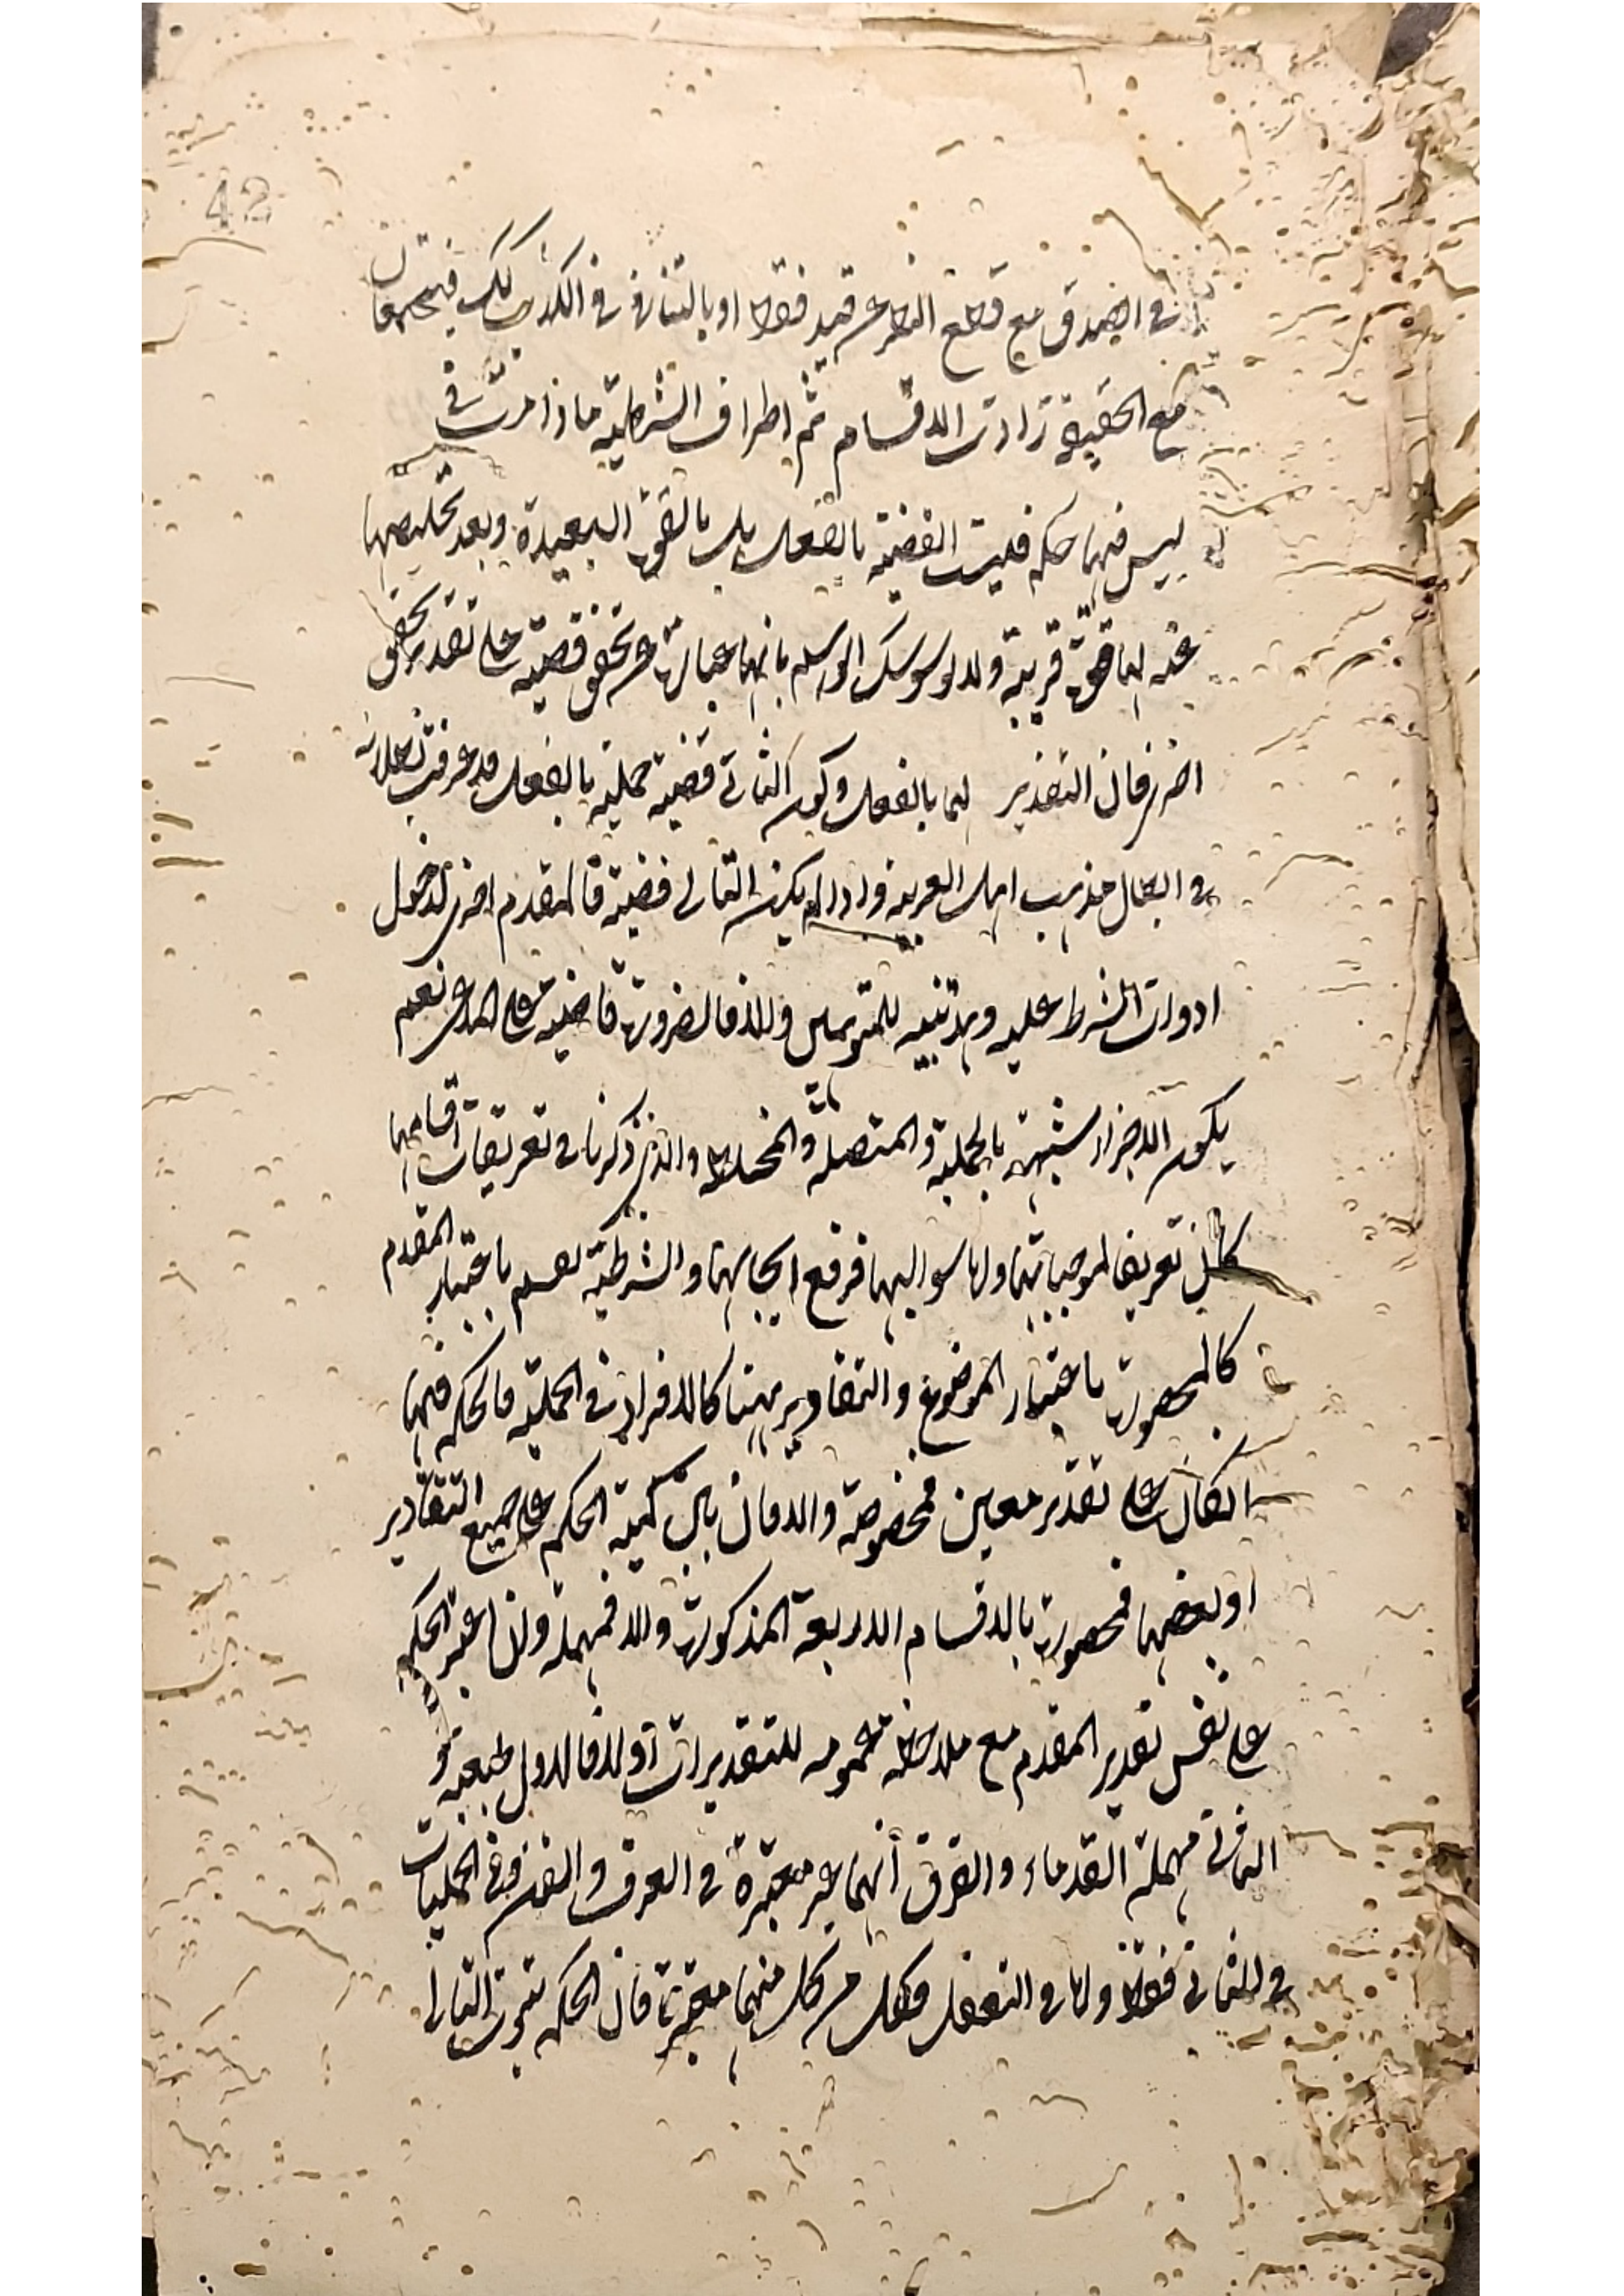 42
في الصدق مع قطع النظر عن قيد فقط او بالتنافي في الكذب كك فيجتمعان
مع الحقيقة زادت الاقسام ثم اطراف الشرطية ما ذا مرت في
ليس فيها حكم فليست القضية بالفعل بل بالقوة البعيدة وبعد تحليصها
عنه لها قوة قريبة ولا يوسوسك بانها عبارة عن تحقق قضية على تقدير تحقق
اخرى فان التقدير لها بالفعل وكون الثاني قضية حملية بالفعل قد عرفت بطلانه
في ابطال مذهب اهل العربية واذ لم يكن التالي قضية فالمقدم احرى لدخول
ادوات الشرط عليه وهذا تنبيه للمتوهمين والا فالضرورة قاضية على المدعى نعم
يكون الاجزاء شبيهة بالحملية والمتصلة والمختلط والذي ذكرنا في تعريفات اقسامها
كان تعريفا لموجباتها واما سوالبها فرفع ايجابها والشرطية تقسم باعتبار المقدم
كالمحصورة باعتبار الموضوع والتقادير ههنا كالافراد في الحملية فالحكم فيها
ان كان على تقدير معين فمخصوصة والا فان بين كمية الحكم على جميع التقادير
او بعضها فمحصورة بالاقسام الاربعة المذكورة والا فمهملة وان اعتبر الحكم
على نفس تقدير المقدم مع ملاحظة عمومه للتقديرات او لا فالاول طبعية و
الثاني مهملة القدماء والفرق انهما غير معتبرة في العرف والفن وفي الحمليات
في الثاني فقط واما في التعقل فكل من كل منهما معتبرة فان الحكم بثبوت التالي